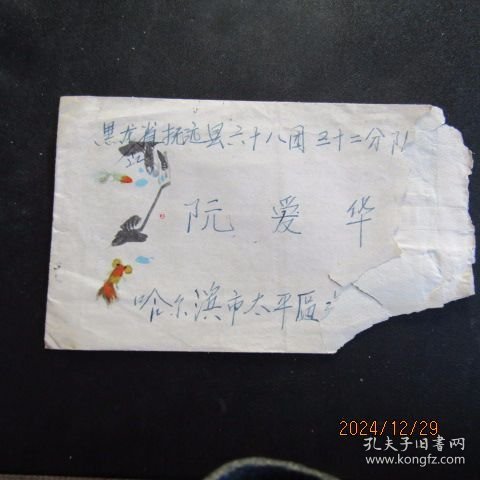 黑龙江省抚远县六十八团三十二分队
阮爱华
哈尔滨市太平区
2024/12/29
孔夫子旧书网
www.kongfz.com